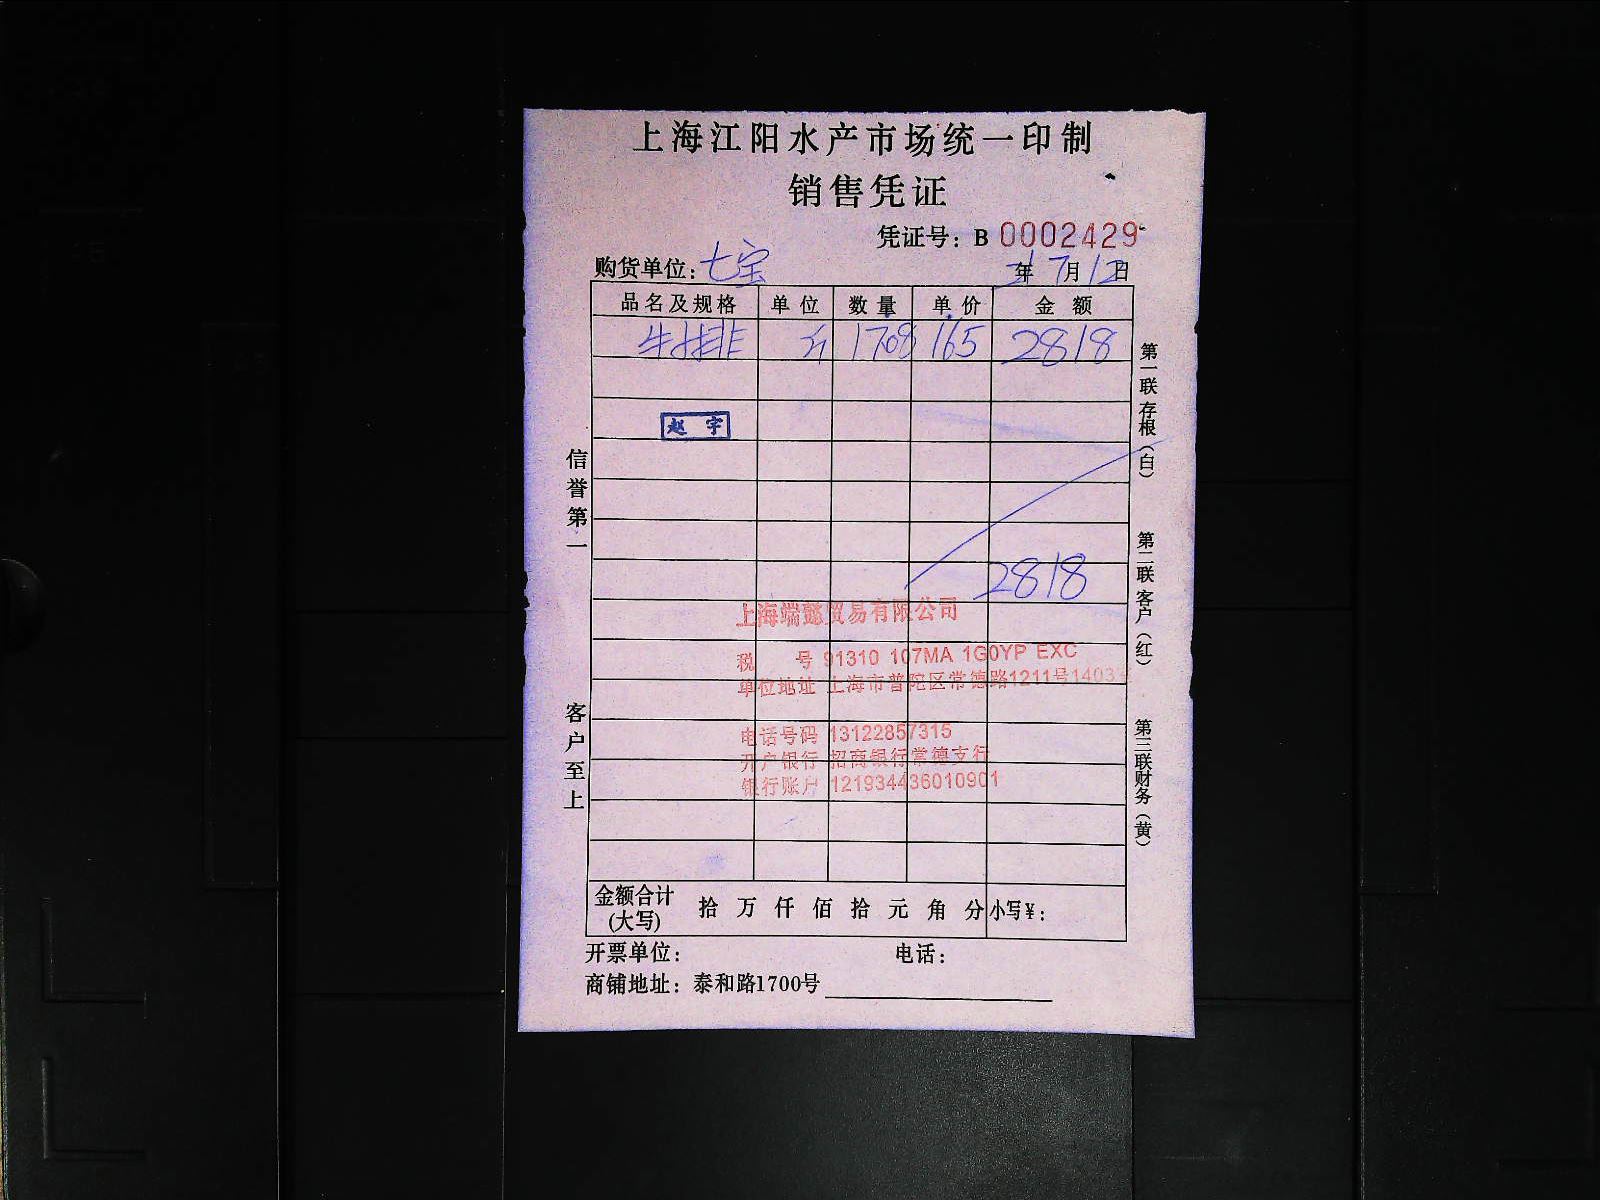 上海江阳水产市场统一印制
销售凭证
凭证号：B 0002429
购货单位：七宝 21年7月12日
品名及规格 单位 数量 单价 金额
牛排 斤 1708 165 2818
赵宇
2818
上海端懿贸易有限公司
税 号 91310 107MA 1G0YP EXC
单位地址 上海市普陀区常德路1211号1403室
电话号码 13122857315
开户银行 招商银行常德支行
银行账户 121934436010901
金额合计(大写) 拾 万 仟 佰 拾 元 角 分 小写¥：
开票单位： 电话：
商铺地址：泰和路1700号
信誉第一
客户至上
第一联存根（白）
第二联客户（红）
第三联财务（黄）